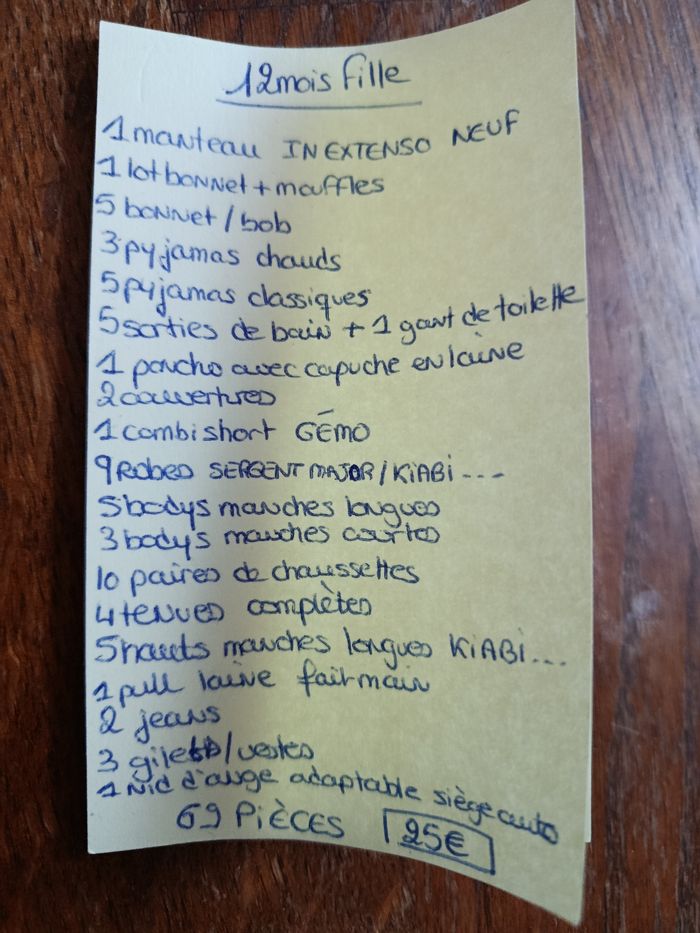 12mois fille
1 manteau IN EXTENSO NEUF
1 lot bonnet + mouffles
5 bonnet / bob
3 pyjamas chauds
5 pyjamas classiques
5 sorties de bain + 1 gant de toilette
1 poncho avec capuche en laine
2 couvertures
1 combishort GÉMO
9 Robes SERGENT MAJOR / KiABi ---
5 bodys manches longues
3 bodys manches courtes
10 paires de chaussettes
4 tenues complètes
5 hauts manches longues KiABi...
1 pull laine fait main
2 jeans
3 gilets / vestes
1 Nid d'ange adaptable siège auto
69 PiÈCES 25€